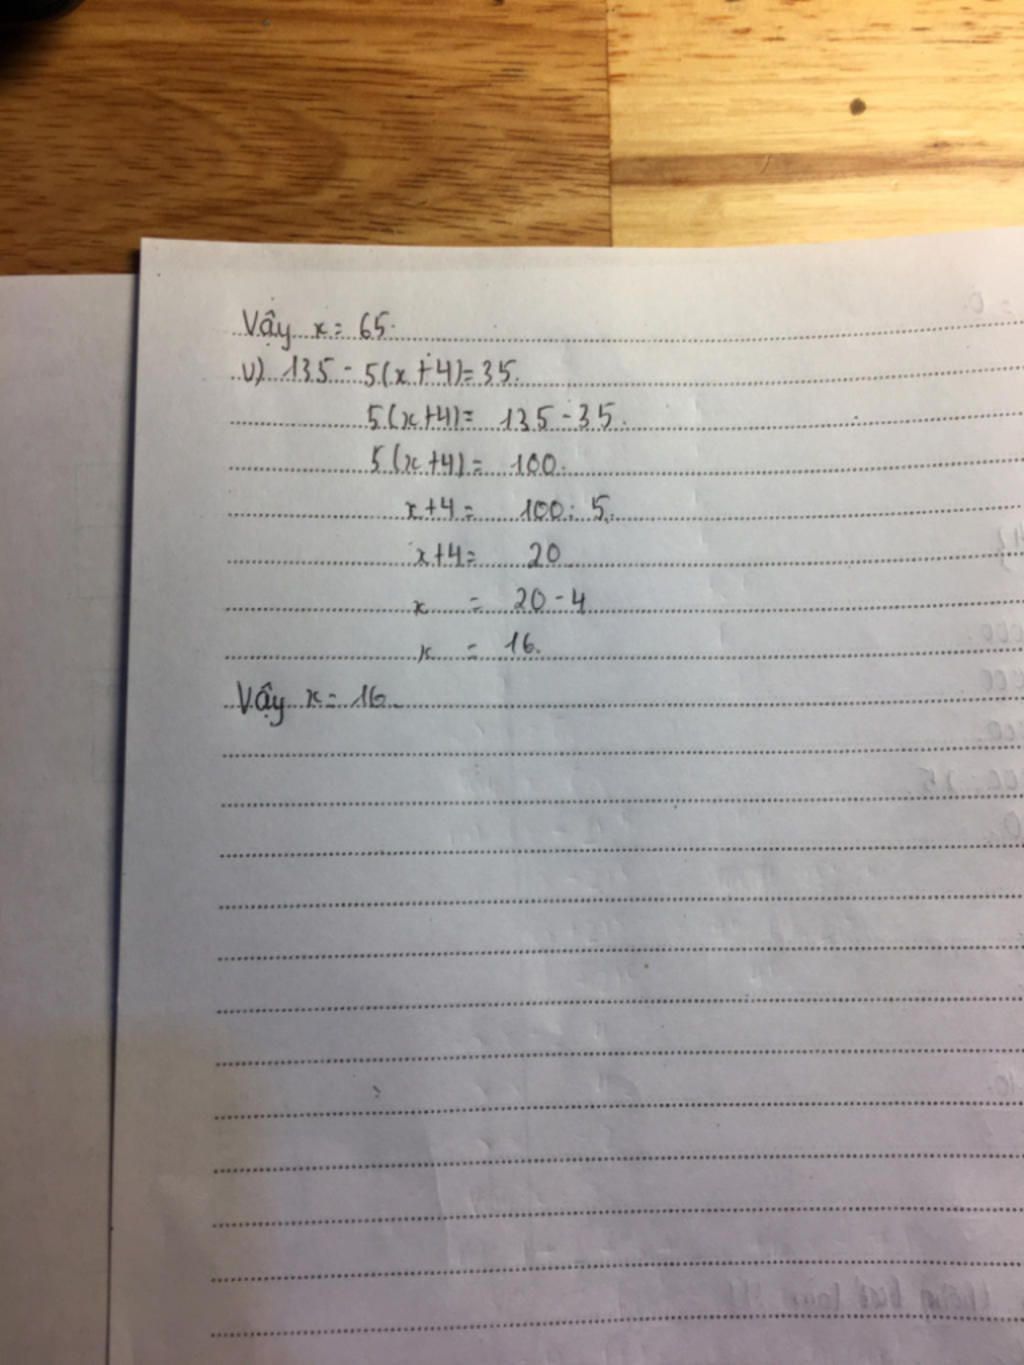 Vậy x = 65.
v) 135 - 5(x+4)=35.
5(x+4)= 135-35.
5(x+4)= 100.
x+4= 100: 5.
x+4= 20
x = 20-4
x = 16.
Vậy x = 16.